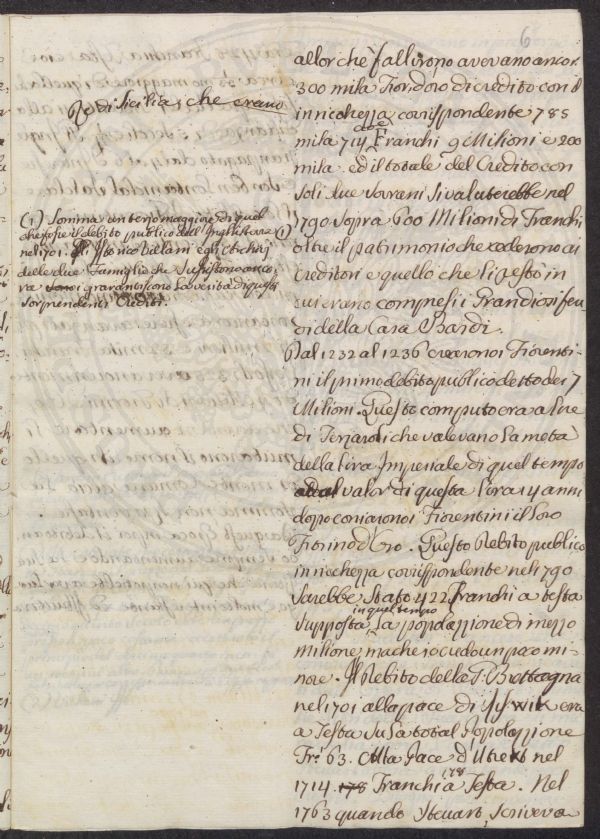 6
Re di Sicilia, che erano
(1) Somma un terzo maggiore di quel
che fosse il debito publico dell'Inghilterra
nel 1701. Gli Istorico Villani e gli
delle due Famiglie che sussistono anco-
ra garantiscono la verità di questi
sorprendenti Crediti.
allor che fallirono avevano ancor
300 mila Fior. d'oro di credito con il
in ricchezza corrispondente 785
mila 714 cioè Franchi 9 Milioni e 200
mila. ed il totale del Credito con
soli due Sovrani si valuterebbe nel
1790 sopra 600 Milioni di Franchi (1)
oltre il patrimonio che cederono ai
creditori e quello che li restò in
cui erano compresi i Grandiosi feu-
di della Casa Bardi.
Dal 1232 al 1236 crearono i Fiorenti-
ni il primo debito publico detto dei 7
Milioni. Questo computo era a Lire
di Terzaroli che valevano la metà
della Lira Imperiale di quel tempo
al valor di questa Lira 14 anni
dopo coniarono i Fiorentini il loro
Fiorino d'Oro. Questo Debito publico
in ricchezza corrispondente nel 1790
sarebbe stato 422 Franchi a testa
supposta in quel tempo la popolazione di mezzo
milione, ma che io credo un poco mi-
nore. Il Debito della G. Brettagna
nel 1701 alla pace di era
a Testa su la total Popolazione
Fr. 63. Alla Pace d'Utrekt nel
1714. 178 Franchi a 178 Testa. Nel
1763 quando Stcuart, scriveva